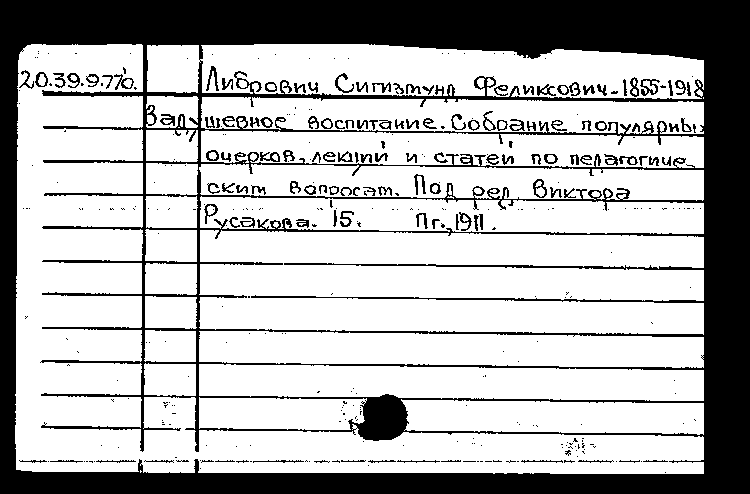 20.39.9.77б. Либрович, Сигизмунд Феликсович-1855-1918
Задушевное воспитание. Собрание популярных
очерков, лекций и статей по педагогиче-
ским вопросам. Под ред. Виктора
Русакова. 15. Пг., 1911.